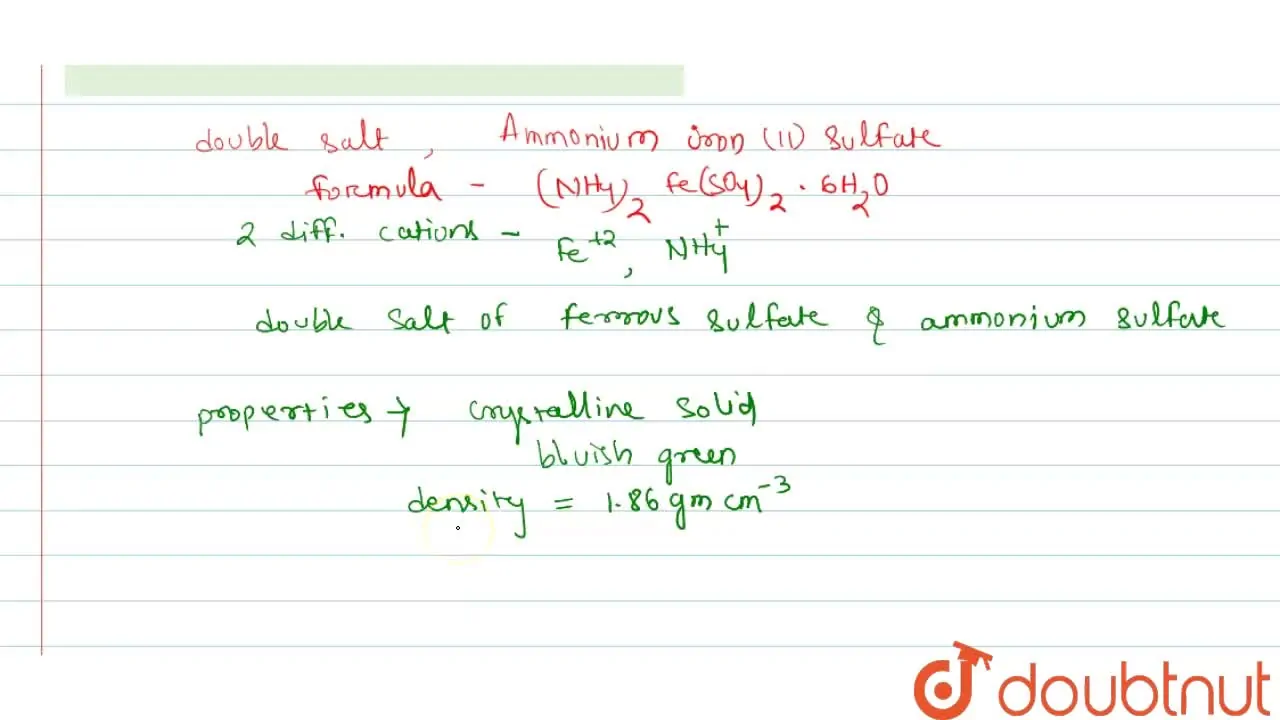 double salt, Ammonium iron (II) sulfate
formula - (NH4)2 Fe(SO4)2 · 6H2O
2 diff. cations - Fe+2, NH4+
double salt of ferrous sulfate & ammonium sulfate
properties → crystalline solid
bluish green
density = 1.86 gm cm-3
doubtnut